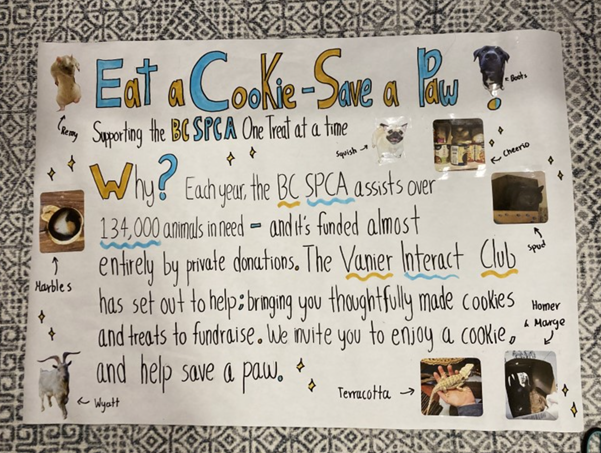 Eat a Cookie - Save a Paw!
= Boots
Remy
Supporting the BC SPCA One Treat at a time
Squish
Cheerio
Why? Each year, the BC SPCA assists over
134,000 animals in need - and it's funded almost
Spud
entirely by private donations. The Vanier Interact Club
Marbles
has set out to help: bringing you thoughtfully made cookies
Homer
& Marge
and treats to fundraise. We invite you to enjoy a cookie,
and help save a paw.
Terracotta
Wyatt